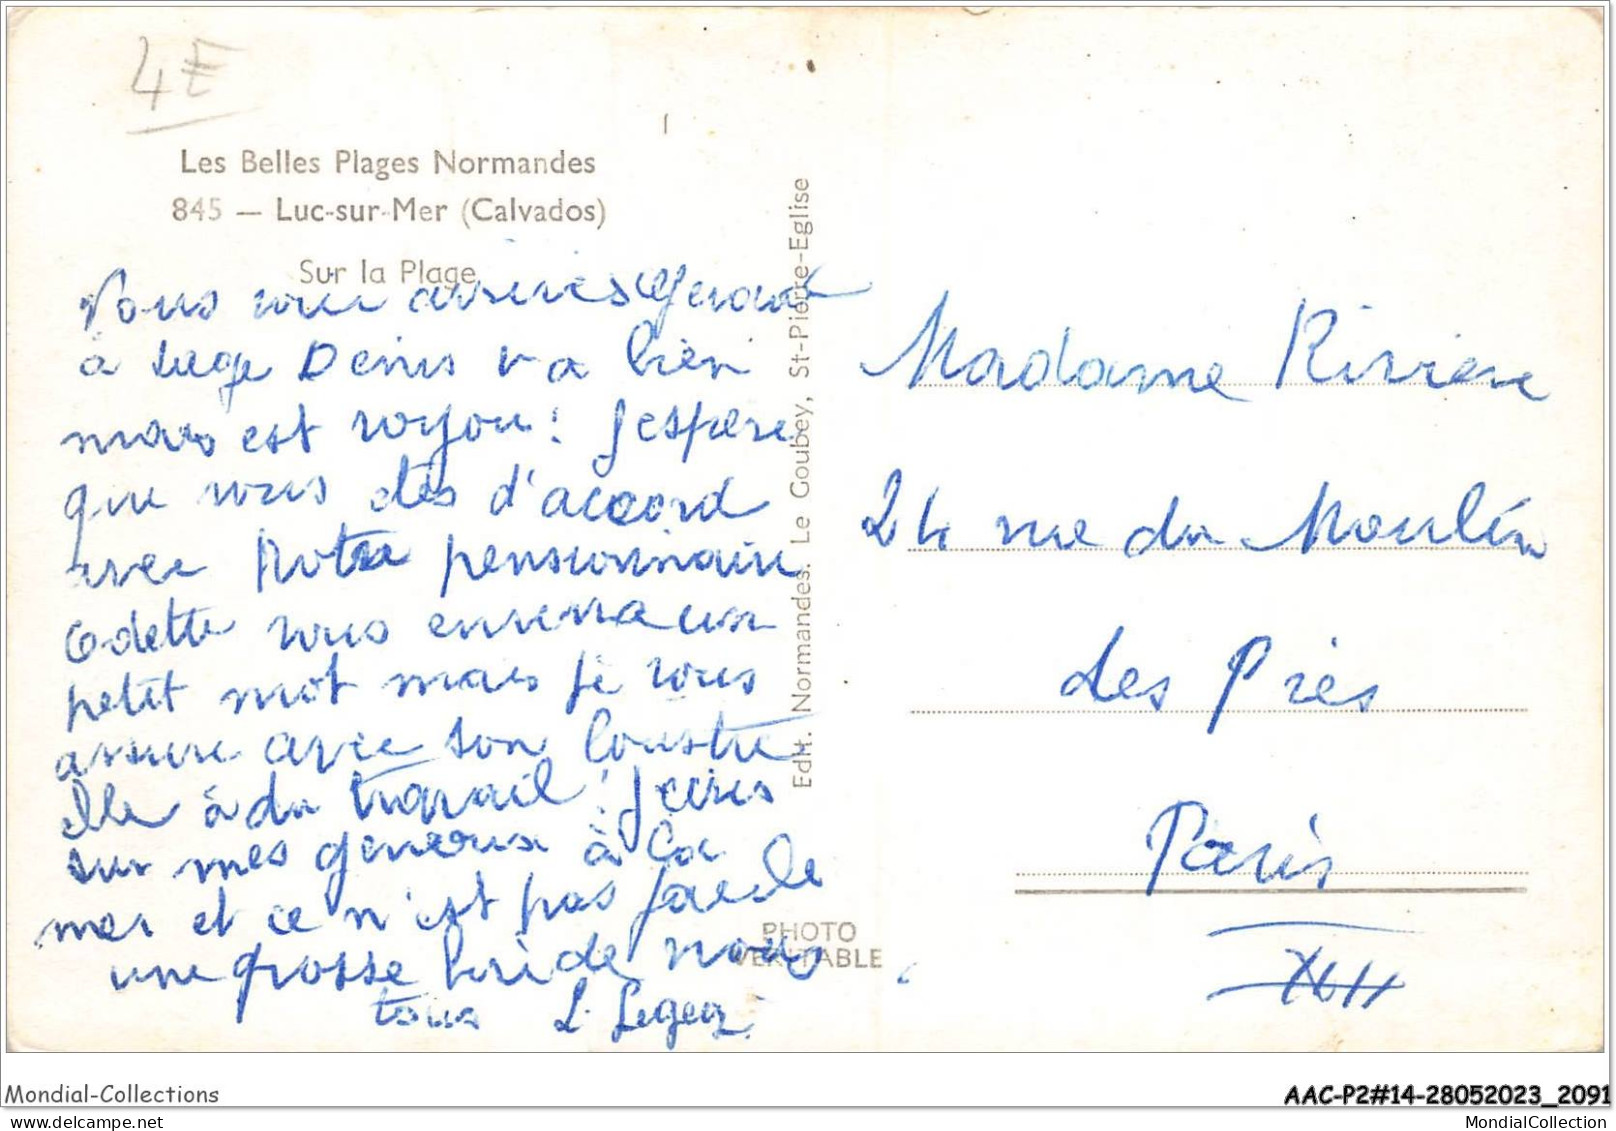 4E
Les Belles Plages Normandes
845 — Luc-sur-Mer (Calvados)
Sur la Plage
Vous
à Denis va bien
mais est voyou ! J'espère
que vous êtes d'accord
avec Notre pensionnaire
Odette vous enverra un
petit mot mais je vous
assure avec son
elle à du travail ! J'écris
sur mes genoux à la
mer et ce n'est pas facile
une grosse de nous
tous L. Leger
Edit. Normandes. Le Goubey, St-Pierre-Eglise
PHOTO
VERITABLE
Madame Riviere
24 rue du Moulin
des Prés
Paris
XIII
Mondial-Collections
AAC-P2#14-28052023_2091
MondialCollection